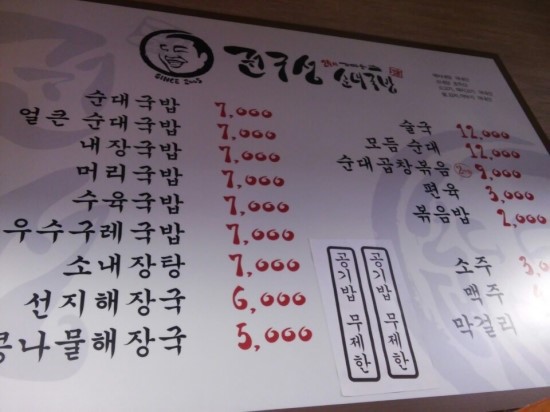 권구성 순대국밥
SINCE 2005
순대국밥 7,000
얼큰 순대국밥 7,000
내장국밥 7,000
머리국밥 7,000
수육국밥 7,000
우수구레국밥 7,000
소내장탕 7,000
선지해장국 6,000
콩나물해장국 5,000
술국 12,000
모듬 순대 12,000
순대곱창볶음 9,000
편육 3,000
볶음밥 2,000
소주
맥주
막걸리
공기밥 무제한
공기밥 무제한